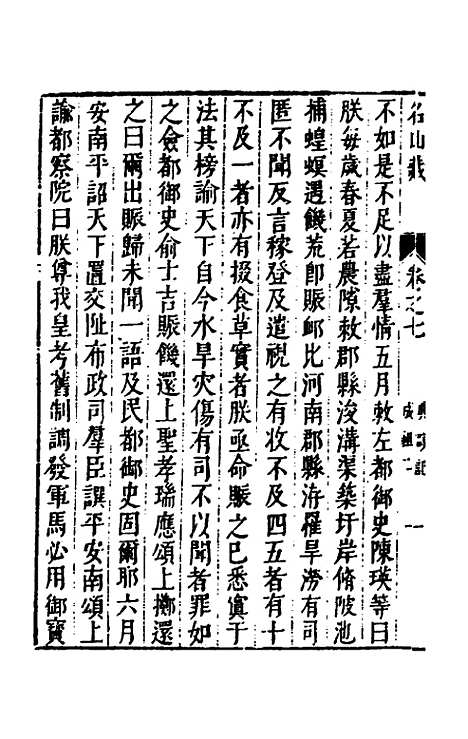 名山藏　卷之七　典謨記　成祖二　一
不如是不足以盡羣情五月敕左都御史陳瑛等曰
朕每歲春夏若農隙敕郡縣浚溝渠築圩岸脩陂池
捕蝗螟遇饑荒卽賑邺比河南郡縣洊罹旱澇有司
匿不聞反言稼登及遣視之有收不及四五者有十
不及一者亦有掇食草實者朕亟命賑之已悉寘于
法其榜諭天下自今水旱灾傷有司不以聞者罪如
之僉都御史俞士吉賑饑還上聖孝瑞應頌上擲還
之曰爾出賑歸未聞一語及民都御史固爾耶六月
安南平詔天下置交阯布政司羣臣譔平安南頌上
諭都察院曰朕尊我皇考舊制調發軍馬必用御寶